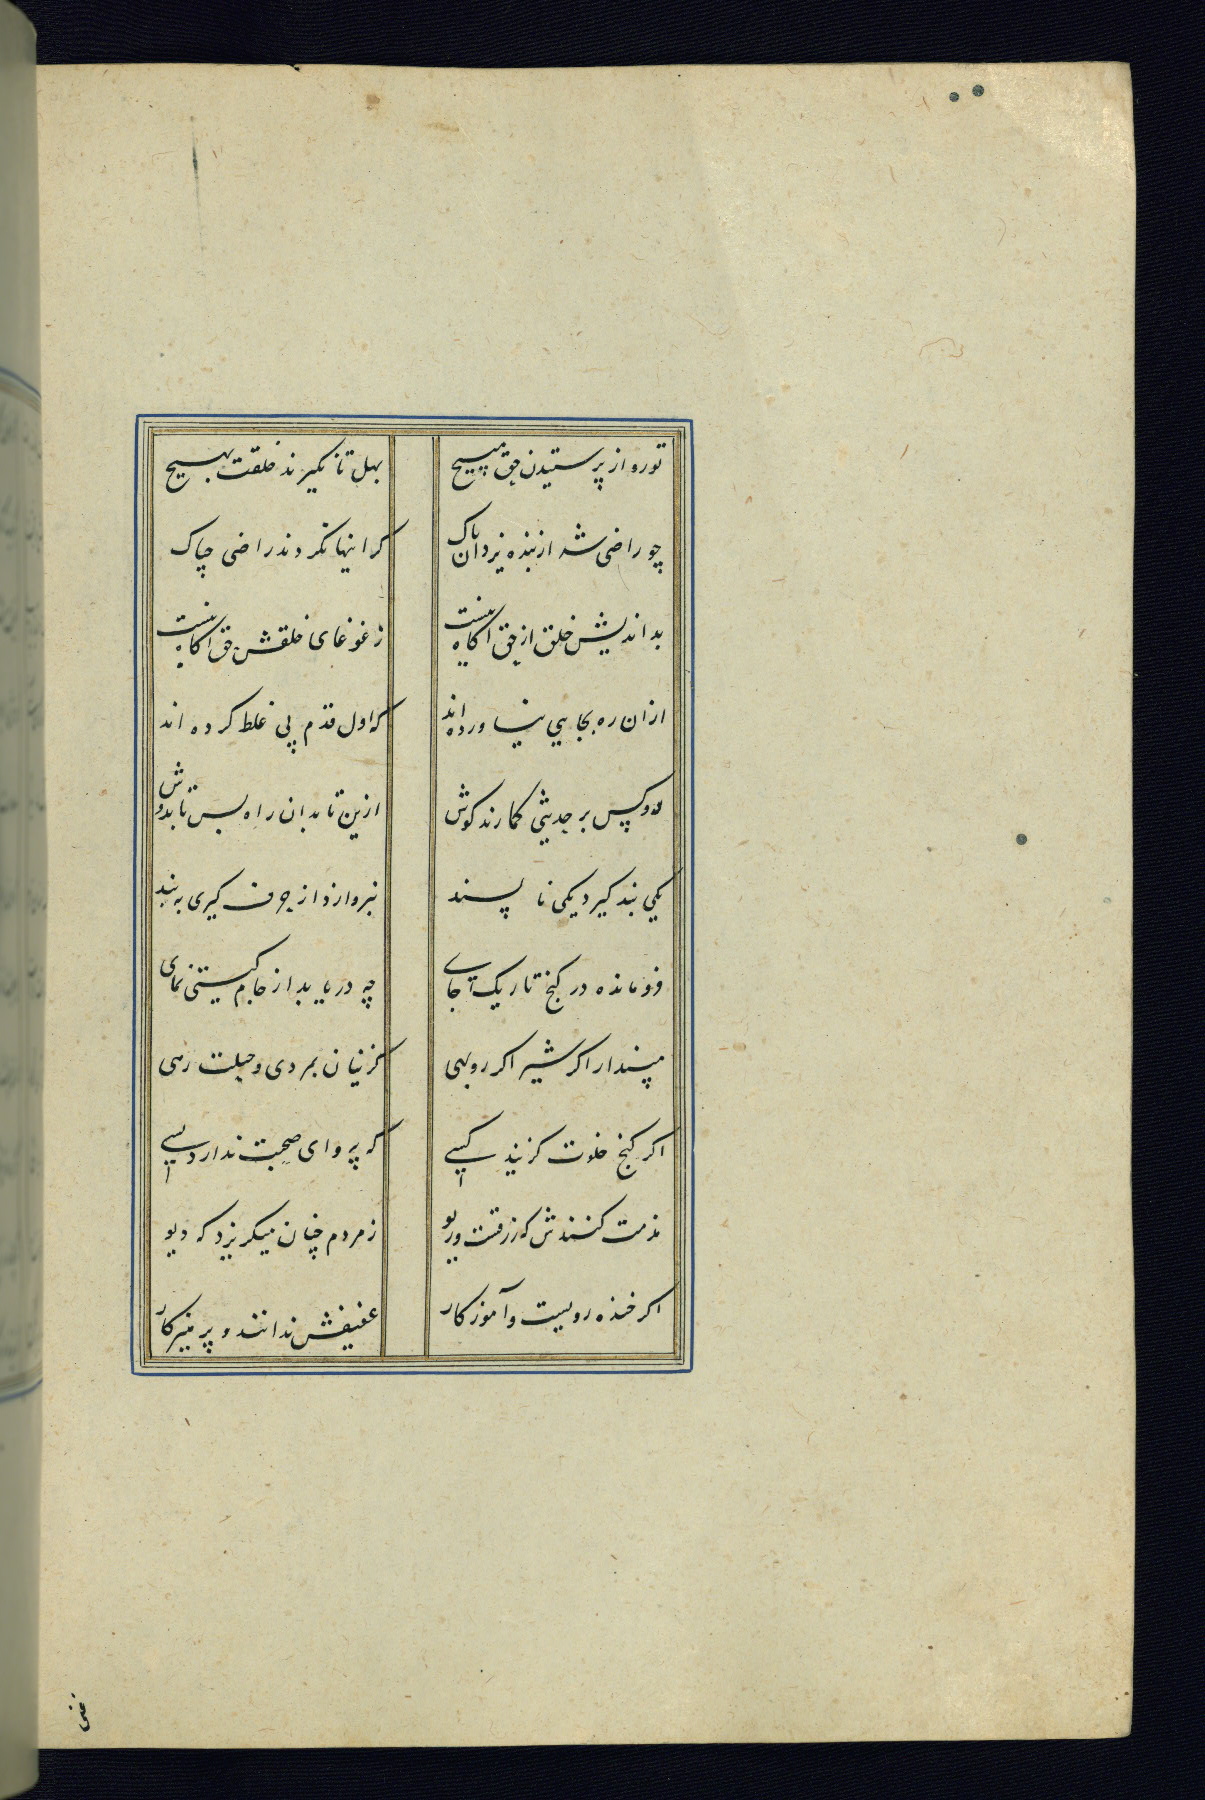 تو رو از پرستیدن حق مپیچ بهل تا نگیرند خلقت بهیچ
چو راضی شد از بنده یزدان پاک کر اینها نکردند راضی چباک
بد اندیش خلق از حق آکاه نیست ز غوغای خلقش بحق راه نیست
از ان ره بجایی نیاورده اند که اول قدم پی غلط کرده اند
دو کس بر حدیثی کمارند کوش ازین تا بدان راه بس تا بدوش
یکی پند کیرد یکی نا پسند نپردازد از حرف کیری به پند
فرو مانده در کنج تاریک جای چه دریابد از جام کیتی نمای
مپندار اکر شیر اکر روبهی کزینان بمردی و حیلت رهی
اکر کنج خلوت کزیند کسی که پروای صحبت ندارد بسی
مذمت کنندش که زرقست و ریو ز مردم چنان میکریزد که دیو
اکر خنده رویست و آموزکار عفیفش ندانند و پرهیزکار
غنی